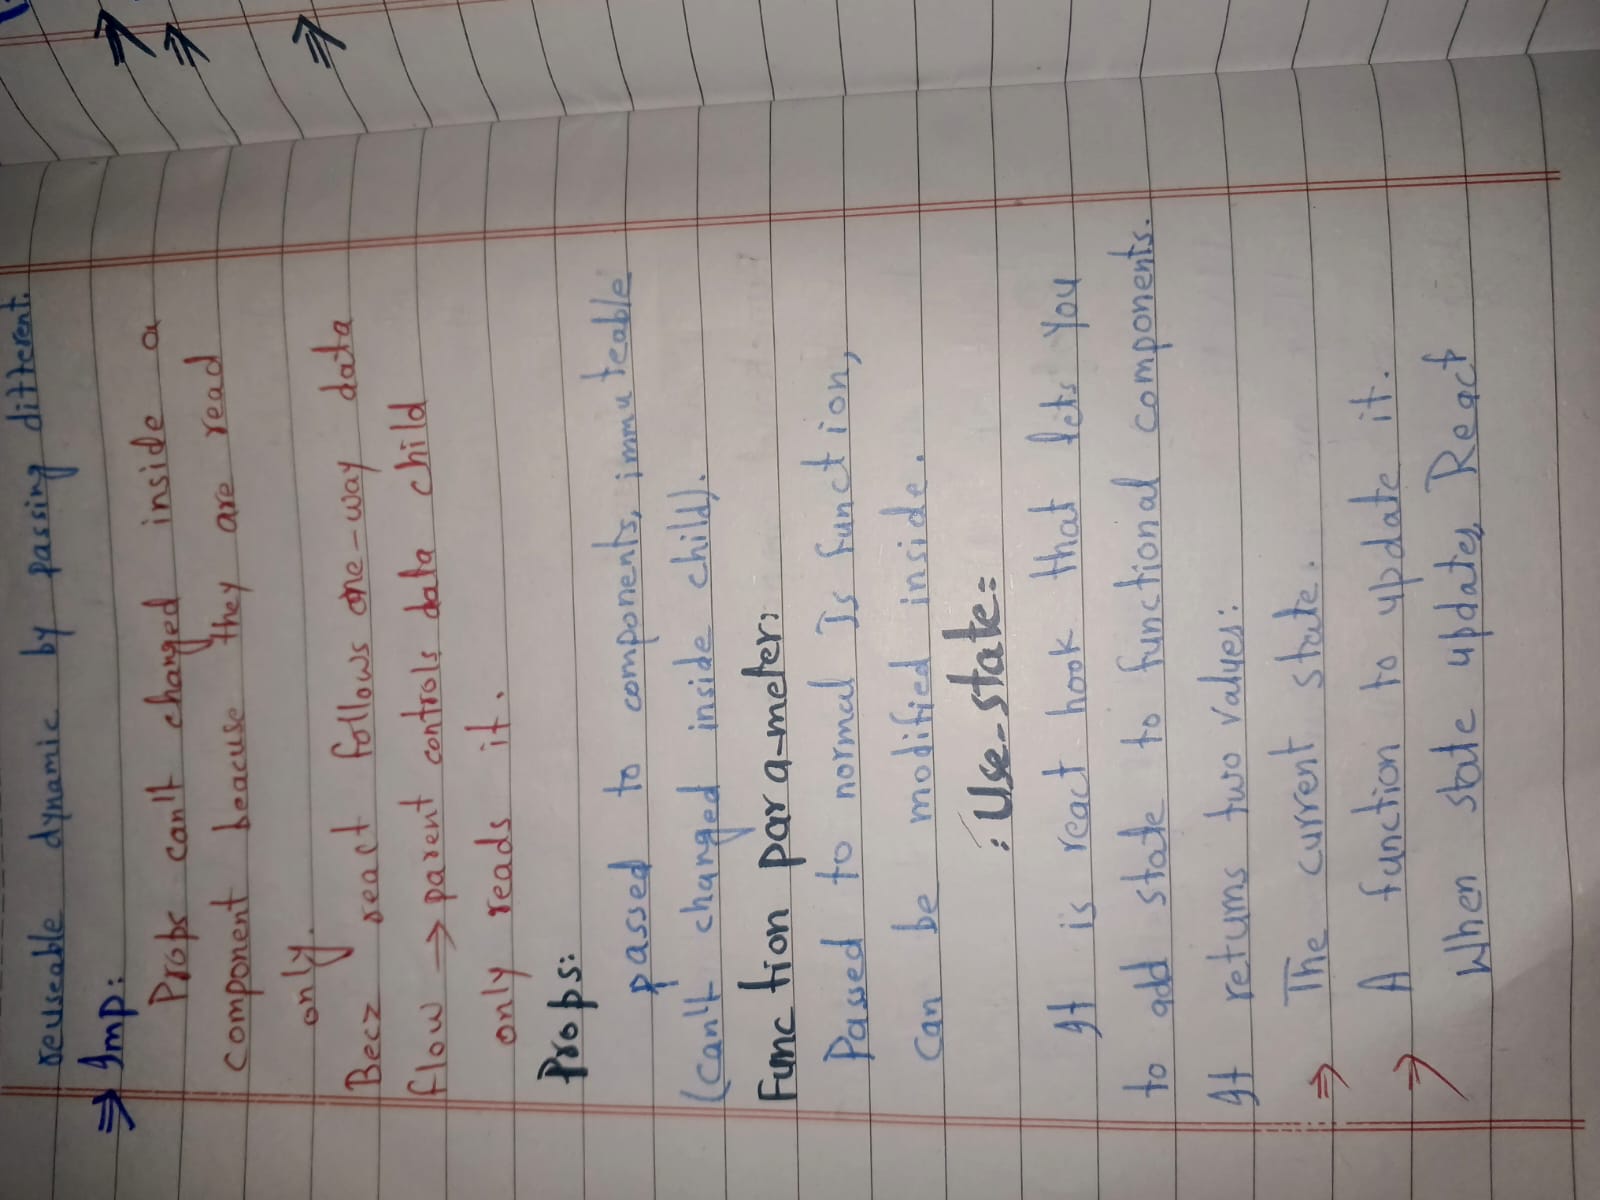 reuseable dynamic by passing different.
⇒ Imp:
Props can't changed inside a
component beacuse they are read
only.
Becz react follows one-way data
flow → parent controls data child
only reads it.
Props:
passed to components, immuteable
(can't changed inside child).
Function para-meter:
Passed to normal Js function,
can be modified inside.
: Use-state:
It is react hook that lets you
to add state to functional components.
It returns two values:
⇒ The current state.
→ A function to update it.
When state updates, React